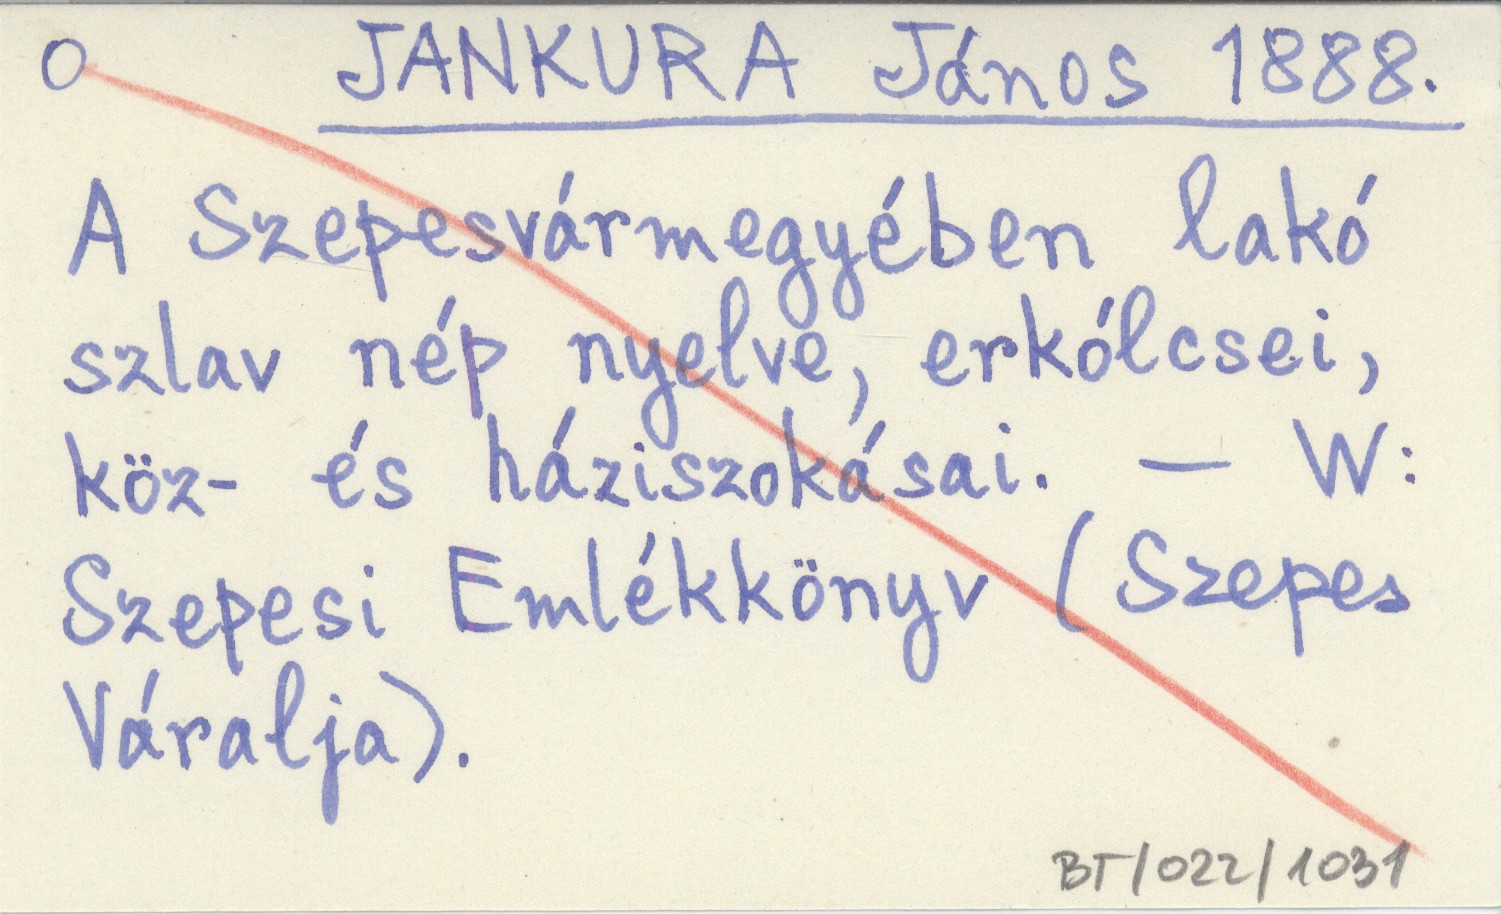 O JANKURA János 1888.
A Szepesvármegyében lakó
szlav nép nyelve, erkólcsei,
köz- és háziszokásai. — W:
Szepesi Emlékkönyv (Szepes
Váralja).
BT/022/1031